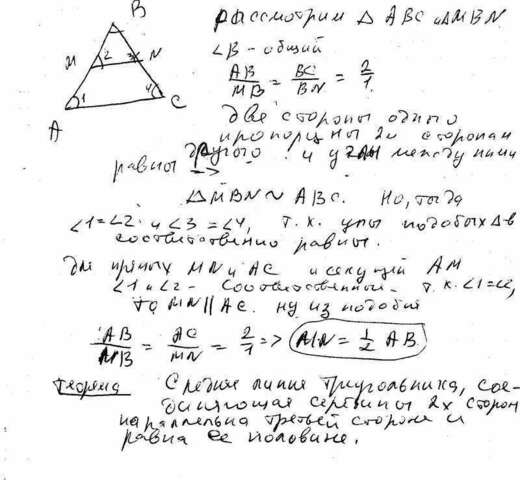 B
M 2 3 N
1 4
A C
рассмотрим △ ABC и △MBN
∠B - общий
AB/MB = BC/BN = 2/1
две стороны одного
пропорцны 2м сторонам
другого и углы между ними
равны =>
△MBN ~ ABC. Но, тогда
∠1=∠2 и ∠3=∠4, т.к. углы подобых △-в
соответственно равны.
для прямых MN и AC и секущей AM
∠1 и ∠2 - соответственные. т.к. ∠1=∠2,
то MN || AC. ну из подобия
AB/MB = AC/MN = 2/1 => MN = 1/2 AB.
Теорема Средняя линия треугольника, сое-
диняющая середины 2х сторон
параллельна третьей стороне и
равна ее половине.